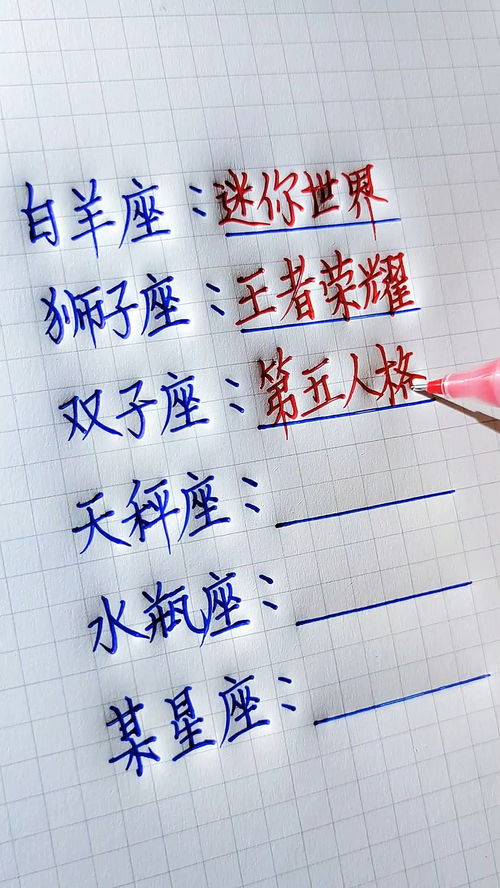 白羊座：迷你世界
狮子座：王者荣耀
双子座：第五人格
天秤座：
水瓶座：
某星座：